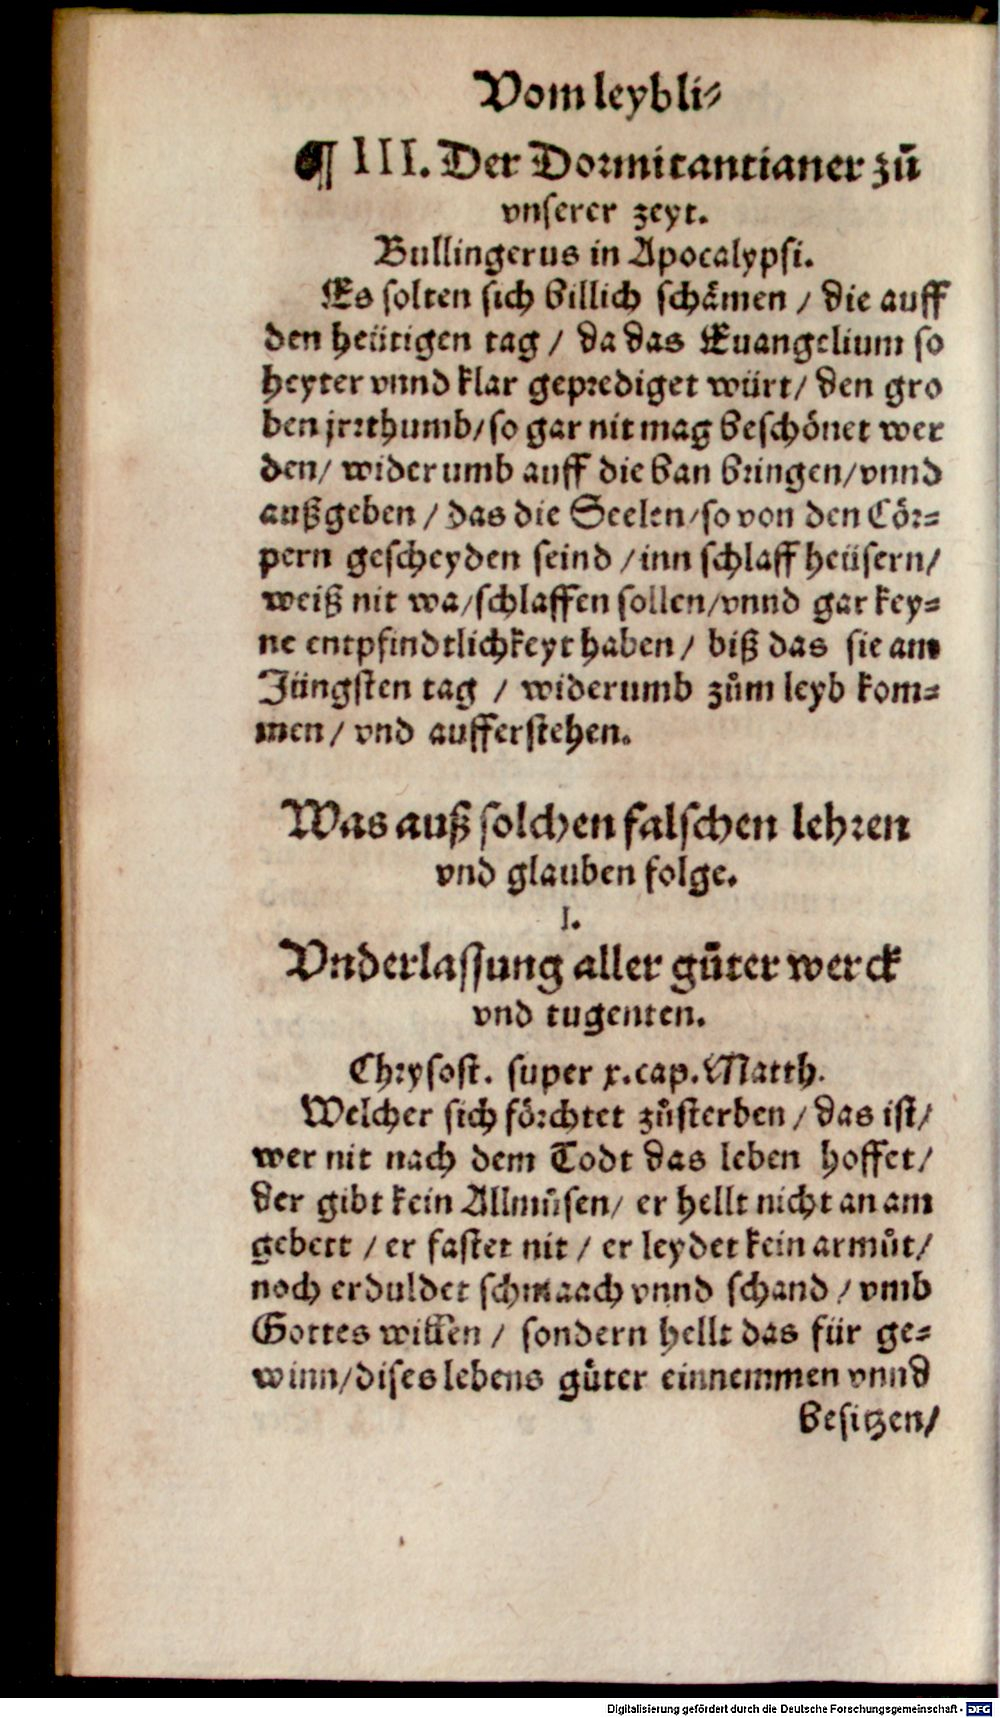 Vom leybli⸗
¶ III. Der Dormitantianer zů
vnserer zeyt.
Bullingerus in Apocalypsi.
Es solten sich billich schämen / die auff
den heütigen tag / da das Euangelium so
heyter vnnd klar geprediget würt / den gro
ben jrrthumb / so gar nit mag beschönet wer
den / widerumb auff die ban bringen / vnnd
außgeben / das die Seelen / so von den Cör⸗
pern gescheyden seind / inn schlaffheüsern /
weiß nit wa / schlaffen sollen / vnnd gar key⸗
ne entpfindtlichkeyt haben / biß das sie am
Jüngsten tag / widerumb zům leyb kom⸗
men / vnd aufferstehen.
Was auß solchen falschen lehren
vnd glauben folge.
I.
Vnderlassung aller gůter werck
vnd tugenten.
Chrysost. super x. cap. Matth.
Welcher sich förchtet zůsterben / das ist /
wer nit nach dem Todt das leben hoffet /
der gibt kein Allmůsen / er hellt nicht an am
gebett / er fastet nit / er leydet kein armůt /
noch erduldet schmaach vnnd schand / vmb
Gottes willen / sondern hellt das für ge⸗
winn / dises lebens gůter einnemmen vnnd
besitzen /
Digitalisierung gefördert durch die Deutsche Forschungsgemeinschaft - DFG